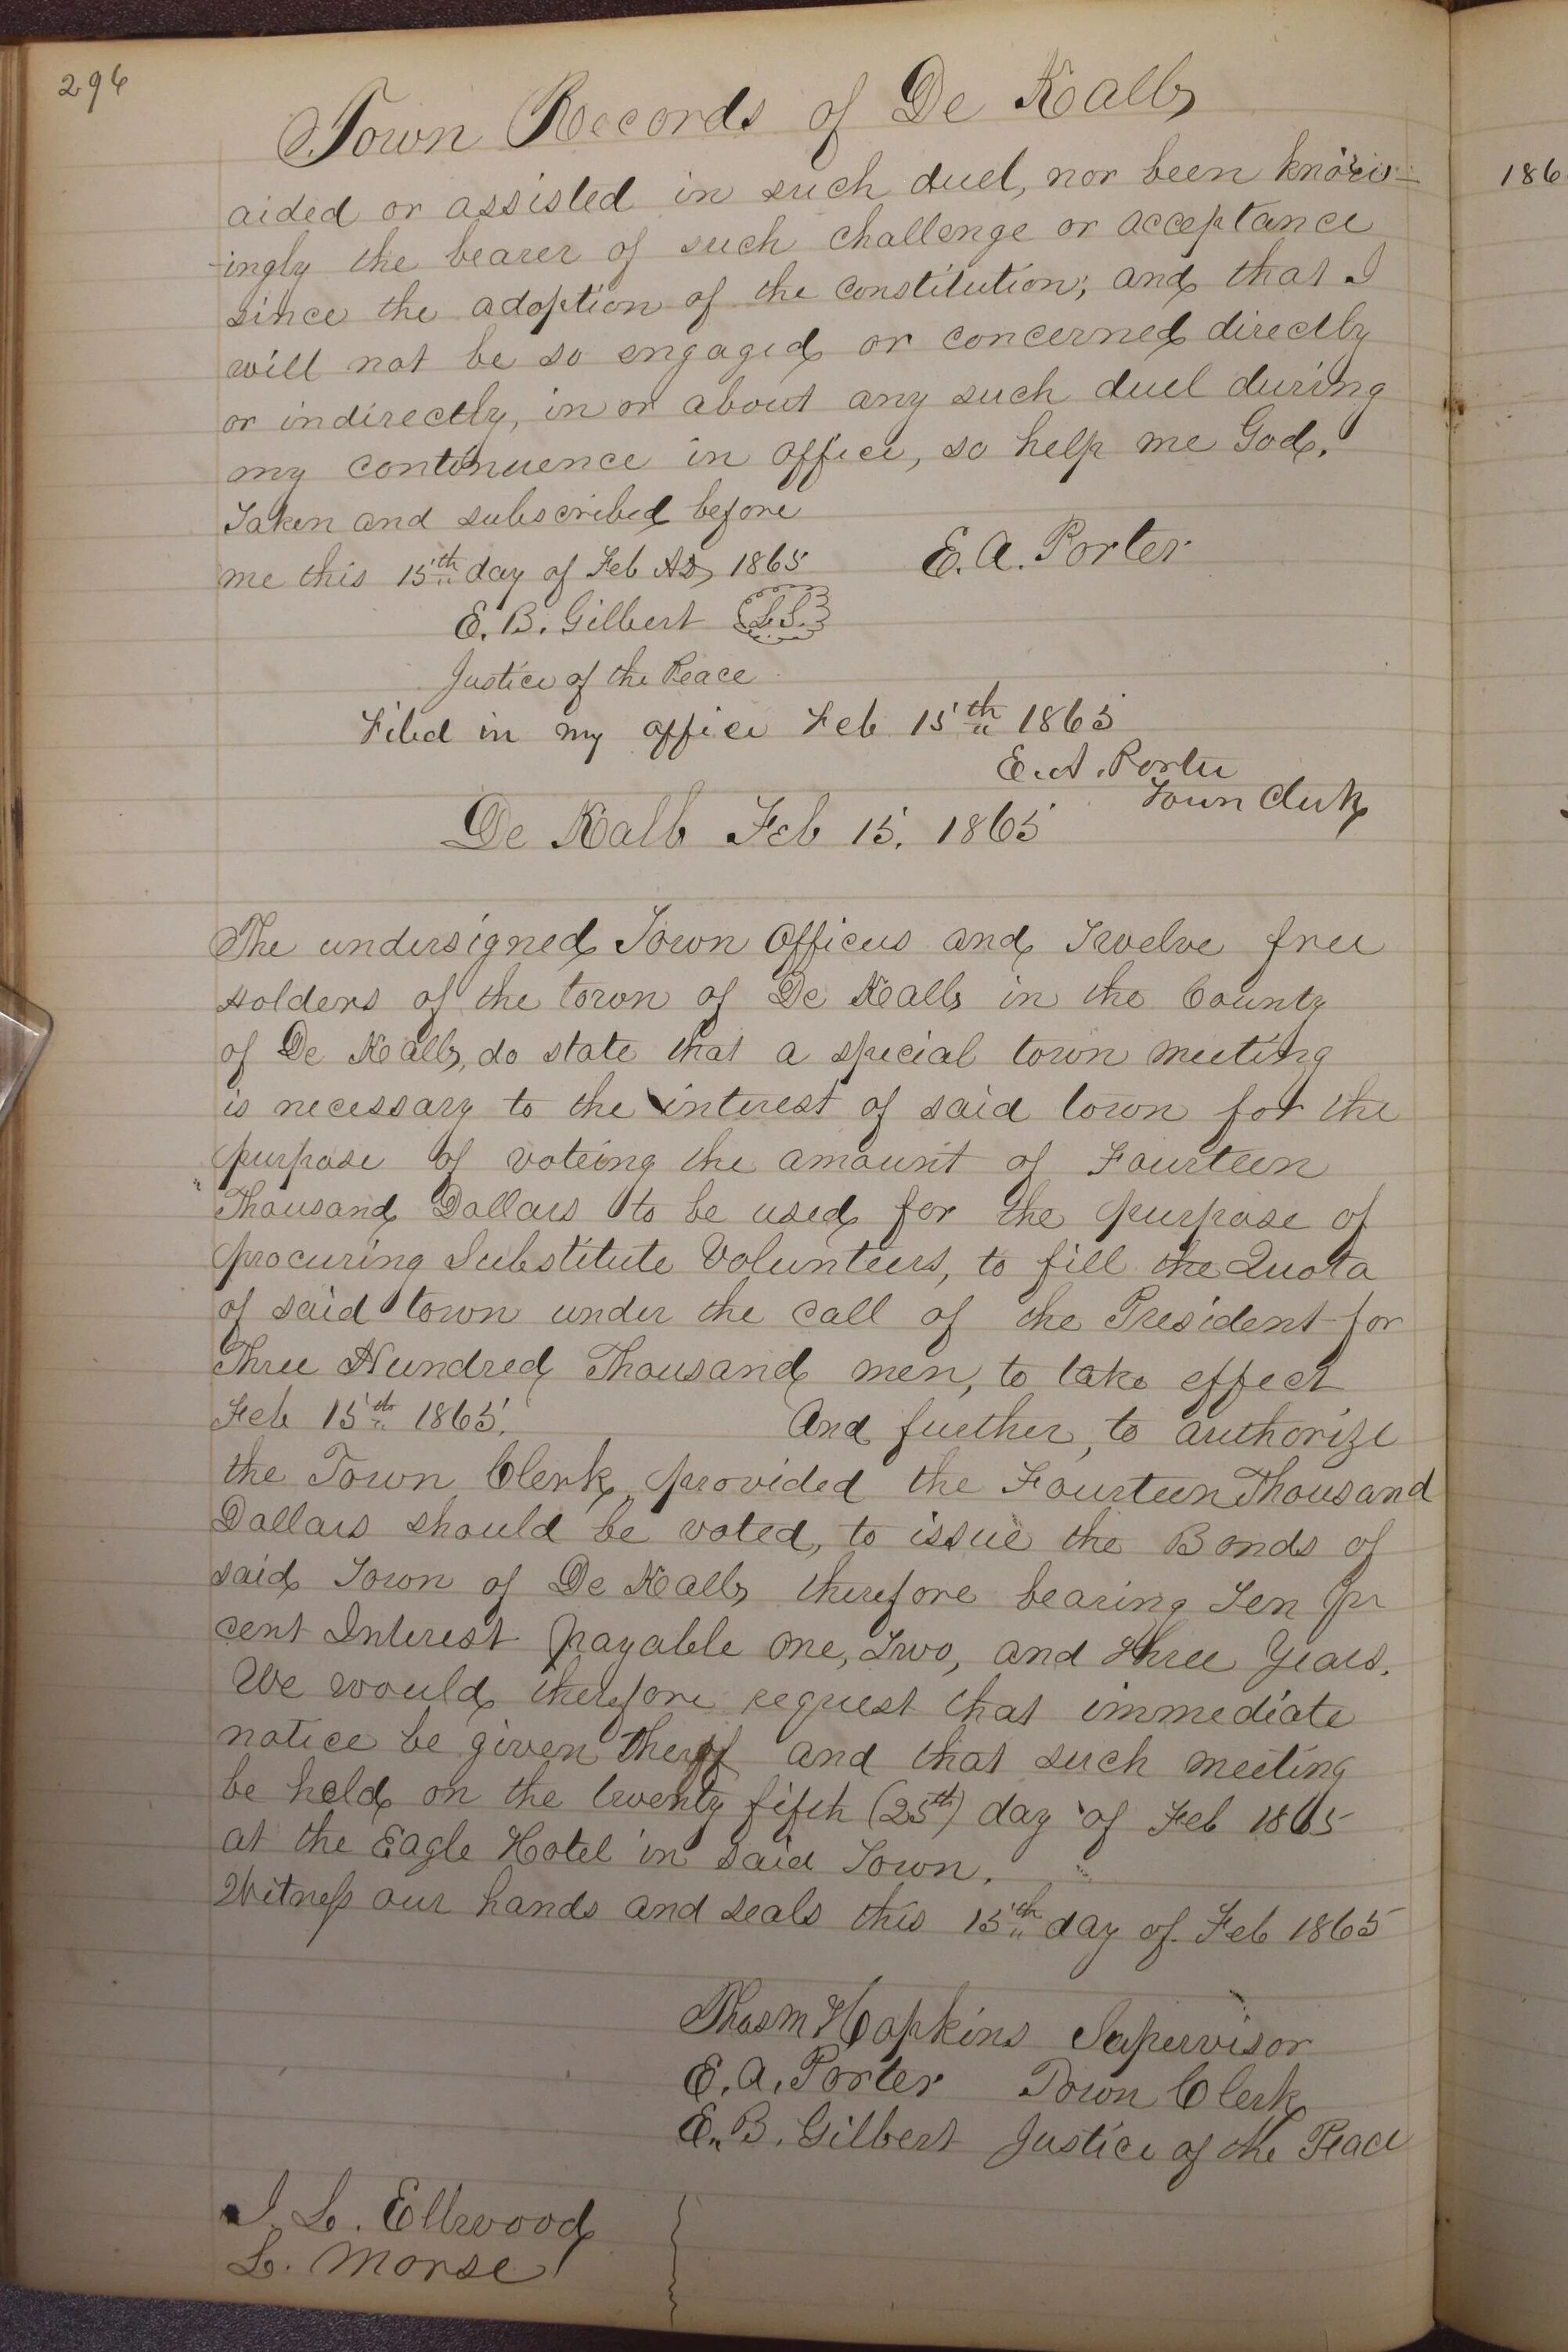 296
Town Records of De Kalb
aided or assisted in such duel, nor been know-
-ingly the bearer of such challenge or acceptance
since the adoption of the constitution; and that I
will not be so engaged or concerned directly
or indirectly, in or about any such duel during
my continuence in office, so help me God.
Taken and subscribed before
me this 15th day of Feb AD 1865
E. A. Porter
E. B. Gilbert L.S.
Justice of the Peace
Filed in my office Feb 15th 1865
E. A. Porter
Town Clerk
De Kalb Feb 15. 1865
The undersigned Town Officers and Twelve free
holders of the town of De Kalb in the County
of De Kalb, do state that a special town meeting
is necessary to the interest of said town for the
purpose of voteing the amount of Fourteen
Thousand Dollars to be used for the purpose of
procuring Substitute Volunteers, to fill the Quota
of said town under the call of the President for
Three Hundred Thousand men, to take effect
Feb 15th 1865. And further, to authorize
the Town Clerk, provided the Fourteen Thousand
Dollars should be voted, to issue the Bonds of
said Town of De Kalb therefore bearing Ten pr
cent Interest payable one, Two, and three Years.
We would therefore request that immediate
notice be given therof and that such meeting
be held on the twenty fifth (25th) day of Feb 1865
at the Eagle Hotel in said Town.
Witness our hands and seals this 15th day of Feb 1865
Thos M Hopkins Supervisor
E. A. Porter Town Clerk
E. B. Gilbert Justice of the Peace
I. L. Ellwood
L. Morse
186